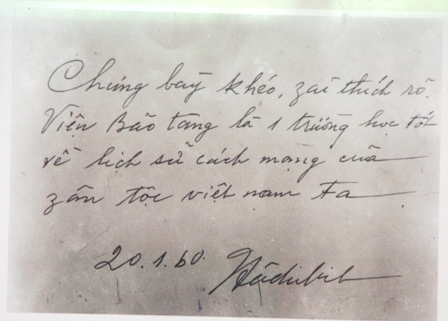 Chưng bày khéo, zải thích rõ.
Viện Bảo tàng là 1 trường học tốt
về lịch sử cách mạng của
zân tộc việt nam ta
20.1.60.